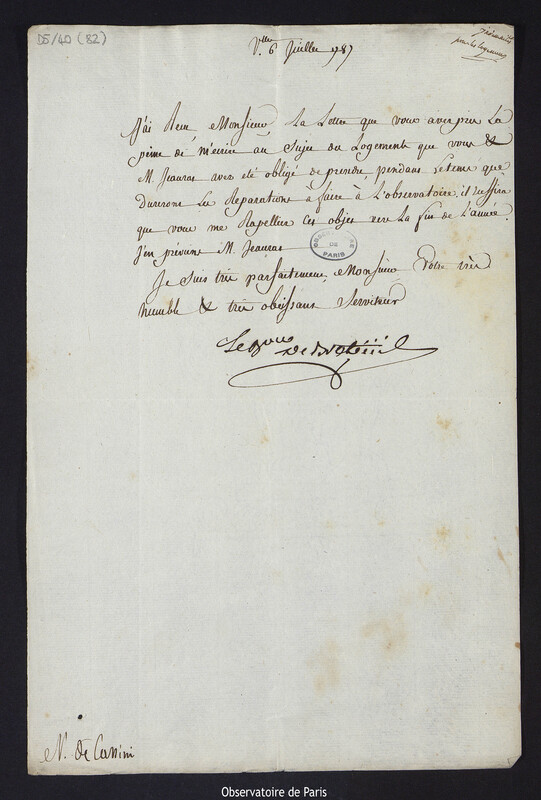 D5/40 (82)
V.lles 6 Juillet 1787
pour les logements
J'ai reçu Monsieur, la Lettre que vous avez pris la
peine de m'écrire au Sujet du Logement que vous &
M. Jeaurat avez été obligé de prendre pendant le tems que
dureront les Reparations à faire à L'observatoire. il suffira
que vous me Rapelliez cet objet vers la fin de l'année.
J'en préviens M. Jeaurat
OBSERVATOIRE DE PARIS
Je suis très parfaitement, Monsieur, votre très
humble & très obéissant Serviteur
Le Bon de Breteuil
M. de Cassini
Observatoire de Paris